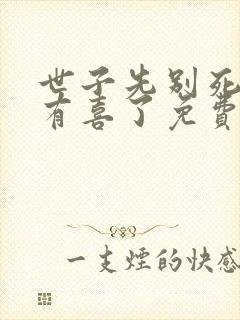 世子先别死
有喜了免費
一支煙的快感